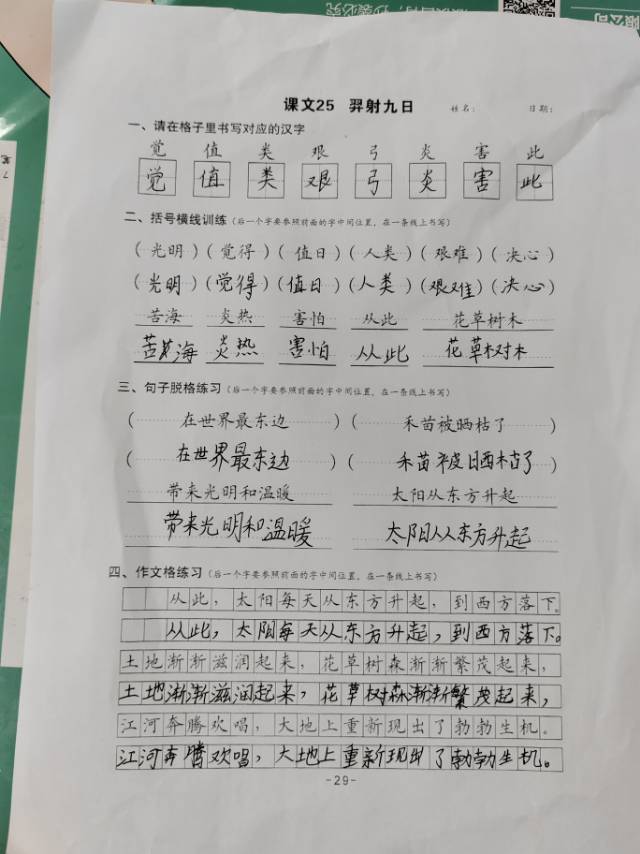 限公司
课文25 羿射九日 姓名： 日期：
一、请在格子里书写对应的汉字
觉 值 类 艰 弓 炎 害 此
觉 值 类 艰 弓 炎 害 此
二、括号横线训练（后一个字要参照前面的字中间位置，在一条线上书写）
（光明）（觉得）（值日）（人类）（艰难）（决心）
（光明）（觉得）（值日）（人类）（艰难）（决心）
苦海 炎热 害怕 从此 花草树木
苦海 炎热 害怕 从此 花草树木
三、句子脱格练习（后一个字要参照前面的字中间位置，在一条线上书写）
（在世界最东边）（禾苗被晒枯了）
（在世界最东边）（禾苗被晒枯了）
带来光明和温暖 太阳从东方升起
带来光明和温暖 太阳从东方升起
四、作文格练习（后一个字要参照前面的字中间位置，在一条线上书写）
从此，太阳每天从东方升起，到西方落下。
从此，太阳每天从东方升起，到西方落下。
土地渐渐滋润起来，花草树森渐渐繁茂起来，
土地渐渐滋润起来，花草树森渐渐繁茂起来，
江河奔腾欢唱，大地上重新现出了勃勃生机。
江河奔腾欢唱，大地上重新现出了勃勃生机。
-29-